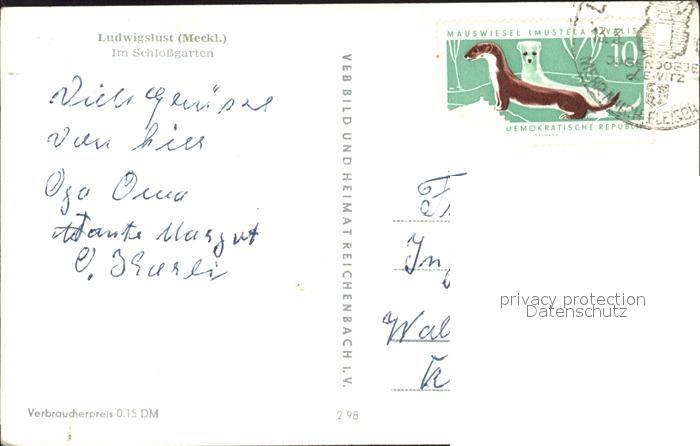 Ludwigslust (Meckl.)
Im Schloßgarten
Viele Grüsse
von hier
Opa Oma
Tante Margot
O. Karli
VEB BILD UND HEIMAT REICHENBACH I. V.
MAUSWIESEL (MUSTELA NIVALIS
10
DEMOKRATISCHE REPUBL
Wal
privacy protection
Datenschutz
Verbraucherpreis 0.15 DM
2 98